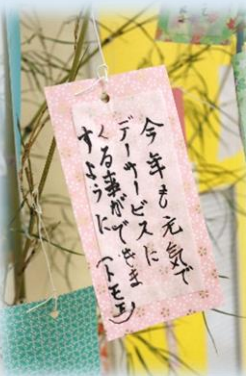 今年も元気で
デーサービスに
くる事ができま
すように(トモエ)